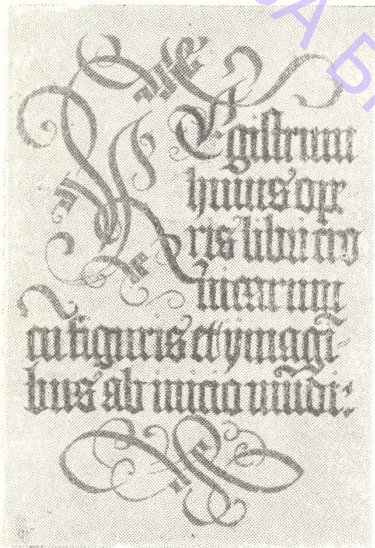 Regiſtrum
huius ope
ris libri cro
nicarum
cū figuris et ymagī-
bus ab inicio mūdi: